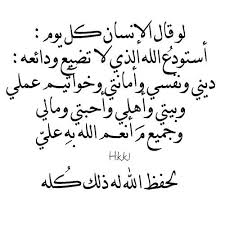 لو قال الإنسان كل يوم :
أستودعُ الله الذي لا تضيع ودائعه :
ديني ونفسي وأمانتي وخواتيم عملي
وبيتي وأهلي وأحبتي ومالي
وجميع مَا أنعم الله بِهِ عليّ
Hkkj
لحفظ الله له ذلك كُله